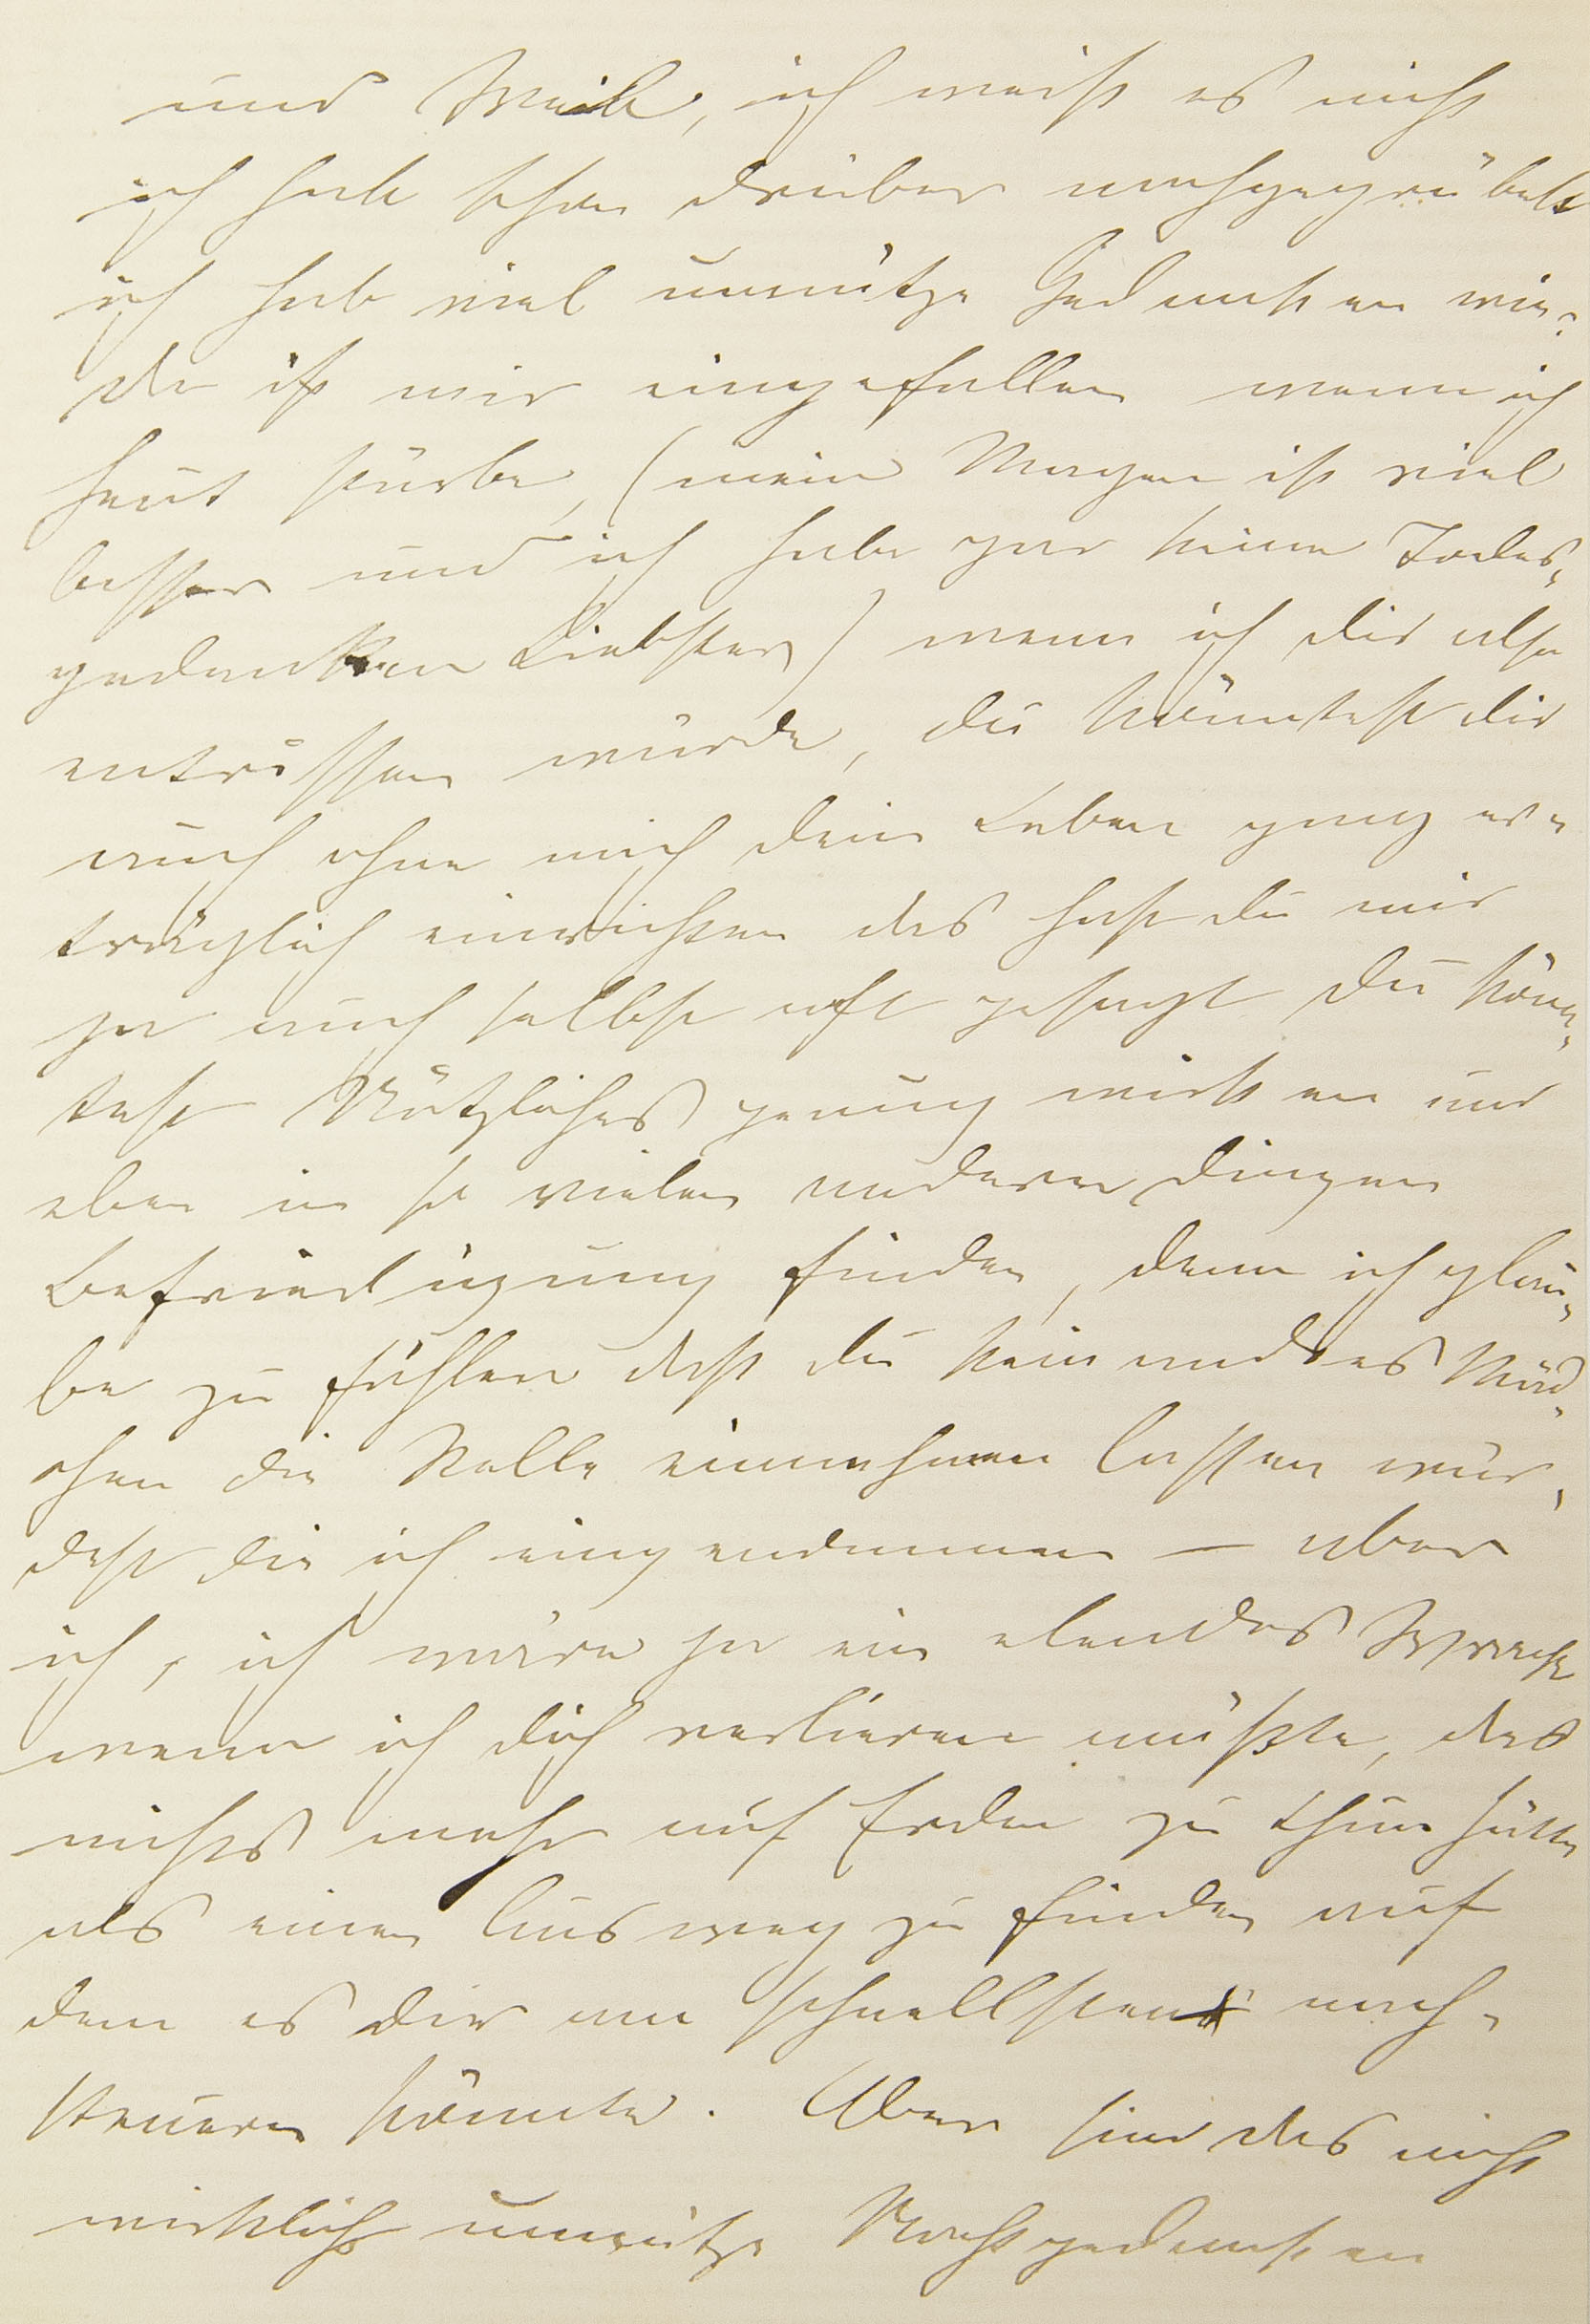 und Weib, ich weiß es nicht
ich hab schon drüber nachgegrübelt
ich hab viel unnütze Gedanken wie-
da ist mir eingefallen wenn ich
heut stürbe, (mein Magen ist viel
besser und ich habe gar keine Todes-
gedanken Liebster) wenn ich dir also
entrissen würde, du könntest dir
auch ohne mich dein Leben ganz er-
träglich einrichten das hast du mir
ja auch selbst oft gesagt du könn-
test Nützliches genug wirken und
eben in so vielen anderen Dingen
Befriedigung finden, denn ich glau-
be zu fühlen daß du kein andres Mäd-
chen die Stelle einnehmen lassen wür-
dest die ich eingenommen — aber
ich, ich wäre ja ein elendes Wrack
wenn ich dich verlieren müßte, das
nichts mehr auf Erden zu thun hätte
als einen Ausweg zu finden auf
dem es dir am schnellsten nach-
steuern könnte. Aber sind das nicht
wirklich unnütze Nachtgedanken